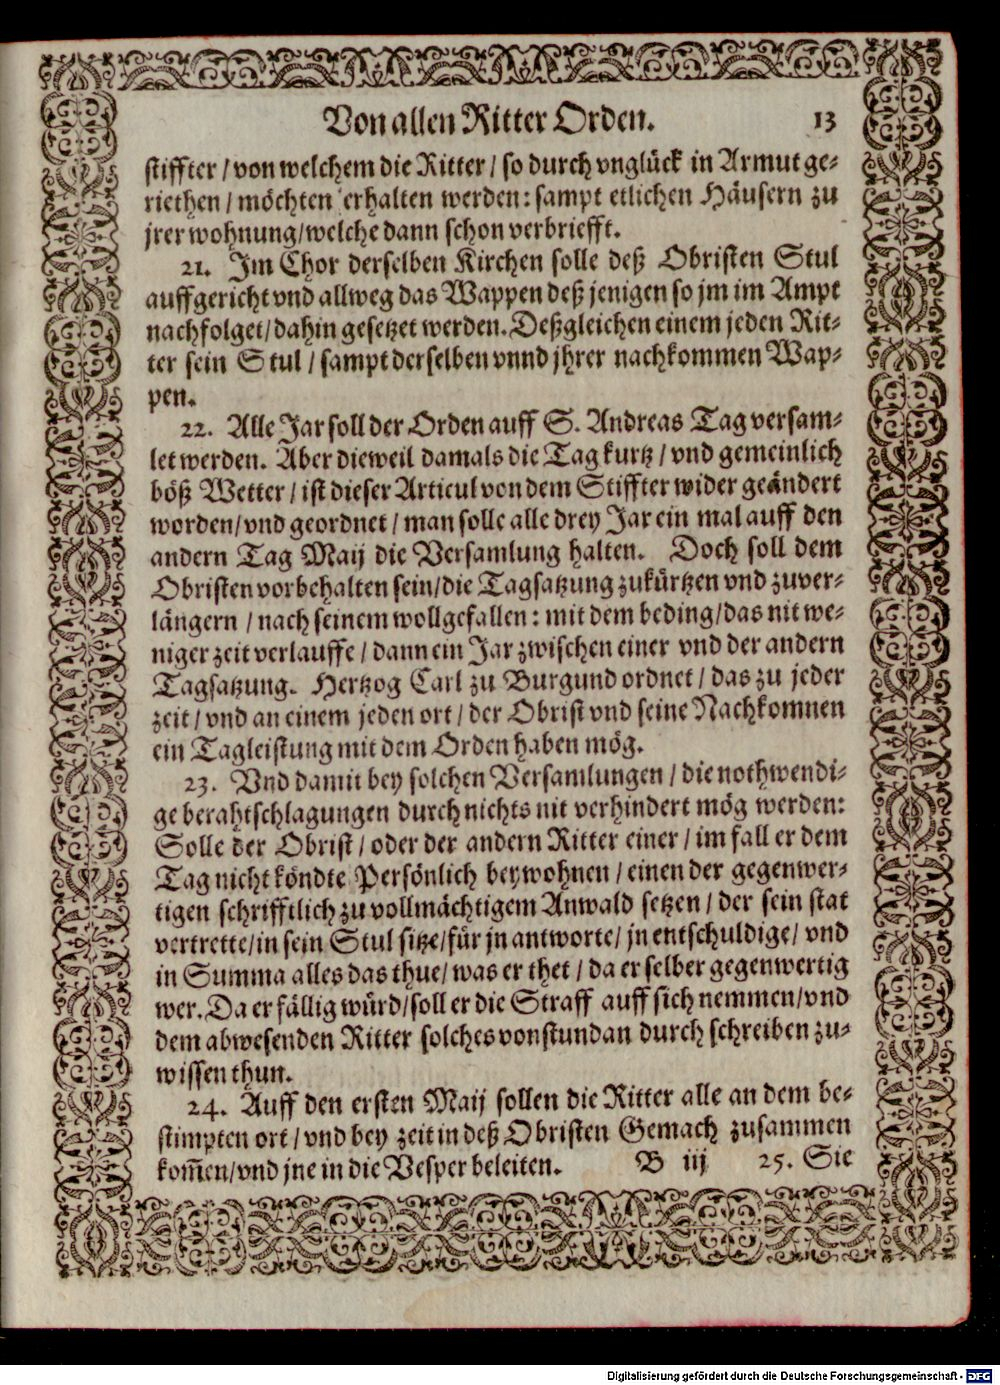 Von allen Ritter Orden. 13
stiffter / von welchem die Ritter / so durch vnglück in Armut ge-
riethen / möchten erhalten werden: sampt etlichen Häusern zu
jrer wohnung/welche dann schon verbriefft.
21. Im Chor derselben Kirchen solle deß Obristen Stul
auffgericht vnd allweg das Wappen deß jenigen so jm im Ampt
nachfolget/dahin gesetzet werden. Deßgleichen einem jeden Rit-
ter sein Stul / sampt derselben vnnd jhrer nachkommen Wap-
pen.
22. Alle Jar soll der Orden auff S. Andreas Tag versam-
let werden. Aber dieweil damals die Tag kurtz / vnd gemeinlich
böß Wetter / ist dieser Articul von dem Stiffter wider geändert
worden/vnd geordnet / man solle alle drey Jar ein mal auff den
andern Tag Maij die Versamlung halten. Doch soll dem
Obristen vorbehalten sein/die Tagsatzung zukürtzen vnd zuver-
längern / nach seinem wollgefallen: mit dem beding/das nit we-
niger zeit verlauffe / dann ein Jar zwischen einer vnd der andern
Tagsatzung. Hertzog Carl zu Burgund ordnet / das zu jeder
zeit / vnd an einem jeden ort / der Obrist vnd seine Nachkomnen
ein Tagleistung mit dem Orden haben mög.
23. Vnd damit bey solchen Versamlungen / die nothwendi-
ge berahtschlagungen durch nichts nit verhindert mög werden:
Solle der Obrist / oder der andern Ritter einer / im fall er dem
Tag nicht köndte Persönlich beywohnen / einen der gegenwer-
tigen schrifftlich zu vollmächtigem Anwald setzen / der sein stat
vertrette/in sein Stul sitze/für jn antworte/ jn entschuldige/ vnd
in Summa alles das thue/ was er thet / da er selber gegenwertig
wer. Da er fällig würd/soll er die Straff auff sich nemmen/vnd
dem abwesenden Ritter solches vonstundan durch schreiben zu-
wissen thun.
24. Auff den ersten Maij sollen die Ritter alle an dem be-
stimpten ort / vnd bey zeit in deß Obristen Gemach zusammen
kom̃en/vnd jne in die Vesper beleiten. B iij 25. Sie
Digitalisierung gefördert durch die Deutsche Forschungsgemeinschaft - DFG